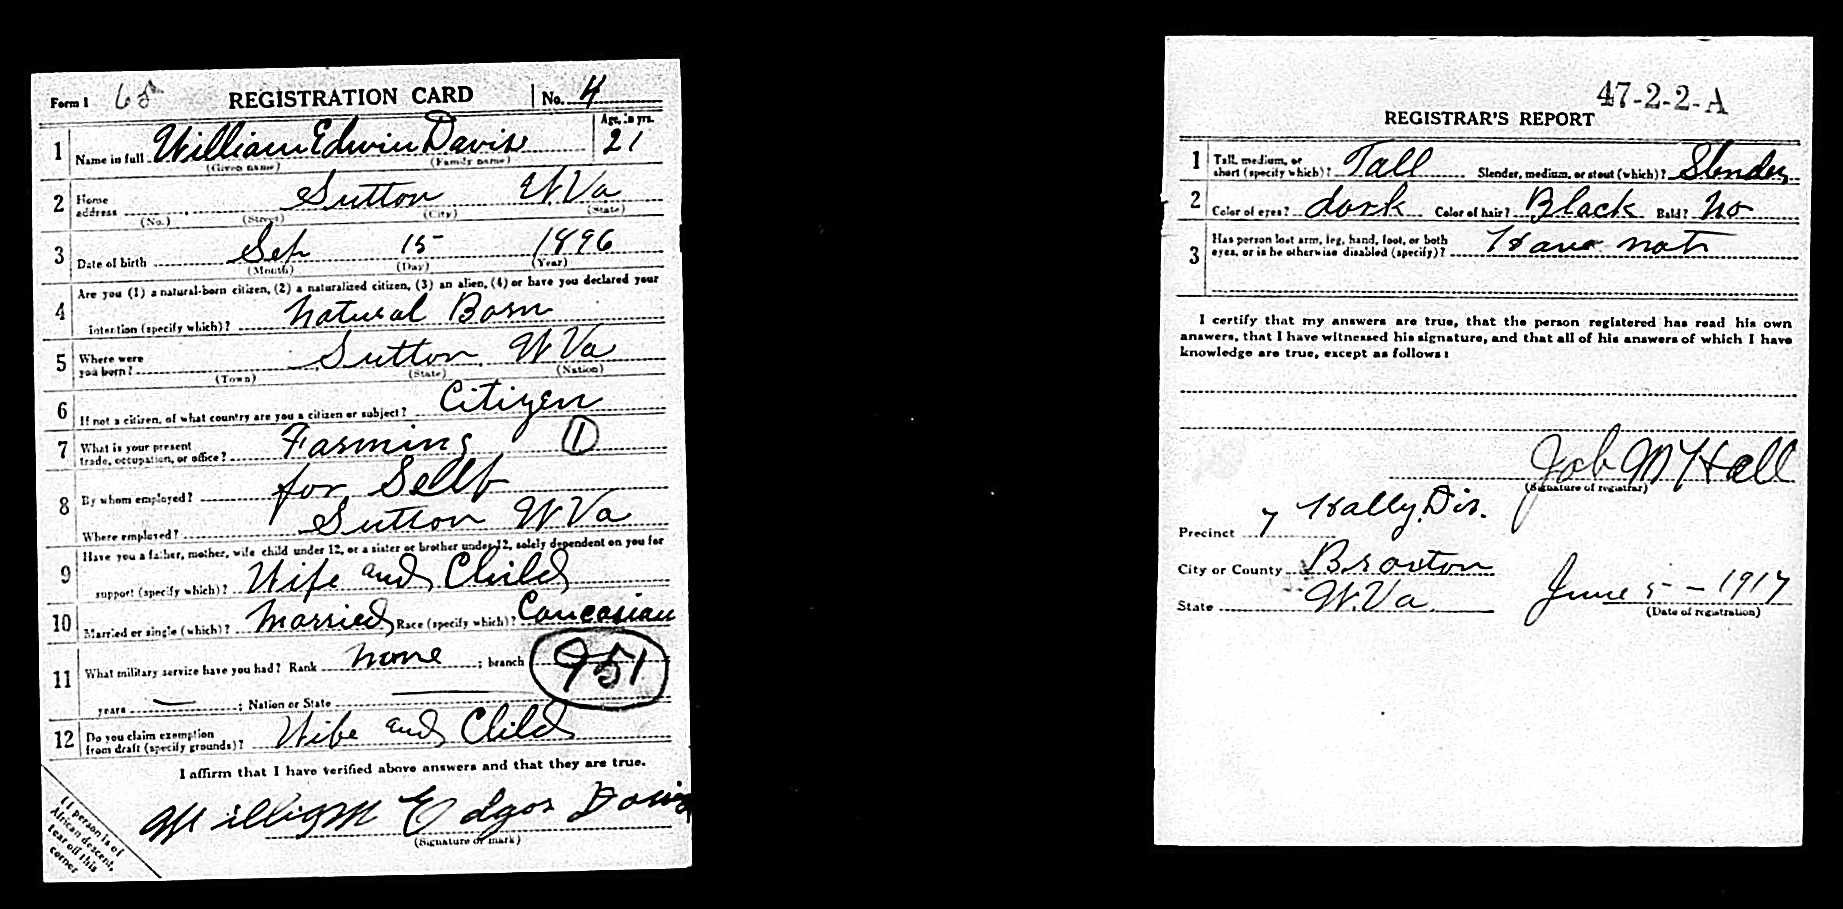 Form 1 65 REGISTRATION CARD No. 4
1 Name in full William Edwin Davis Age, in yrs. 21
(Given name) (Family name)
2 Home address Sutton W Va
(No.) (Street) (City) (State)
3 Date of birth Sep 15 1896
(Month) (Day) (Year)
4 Are you (1) a natural-born citizen, (2) a naturalized citizen, (3) an alien, (4) or have you declared your
intention (specify which)? Natural Born
5 Where were you born? Sutton W Va
(Town) (State) (Nation)
6 If not a citizen, of what country are you a citizen or subject? Citizen
7 What is your present trade, occupation, or office? Farming 1
8 By whom employed? for Self
Where employed? Sutton W Va
9 Have you a father, mother, wife child under 12, or a sister or brother under 12, solely dependent on you for
support (specify which)? Wife and Child
10 Married or single (which)? Married Race (specify which)? Caucasian
11 What military service have you had? Rank None ; branch 951
years — ; Nation or State —
12 Do you claim exemption from draft (specify grounds)? Wife and Child
I affirm that I have verified above answers and that they are true.
William Edgor Davis
(Signature or mark)
If person is of
African descent,
tear off this
corner
47-2-2-A
REGISTRAR'S REPORT
1 Tall, medium, or short (specify which)? Tall Slender, medium, or stout (which)? Slender
2 Color of eyes? dark Color of hair? Black Bald? No
3 Has person lost arm, leg, hand, foot, or both
eyes, or is he otherwise disabled (specify)? Have not
I certify that my answers are true, that the person registered has read his own
answers, that I have witnessed his signature, and that all of his answers of which I have
knowledge are true, except as follows:
Job M Hall
(Signature of registrar)
Precinct 7 Dis.
City or County Braxton
State W. Va. June 5 - 1917
(Date of registration)